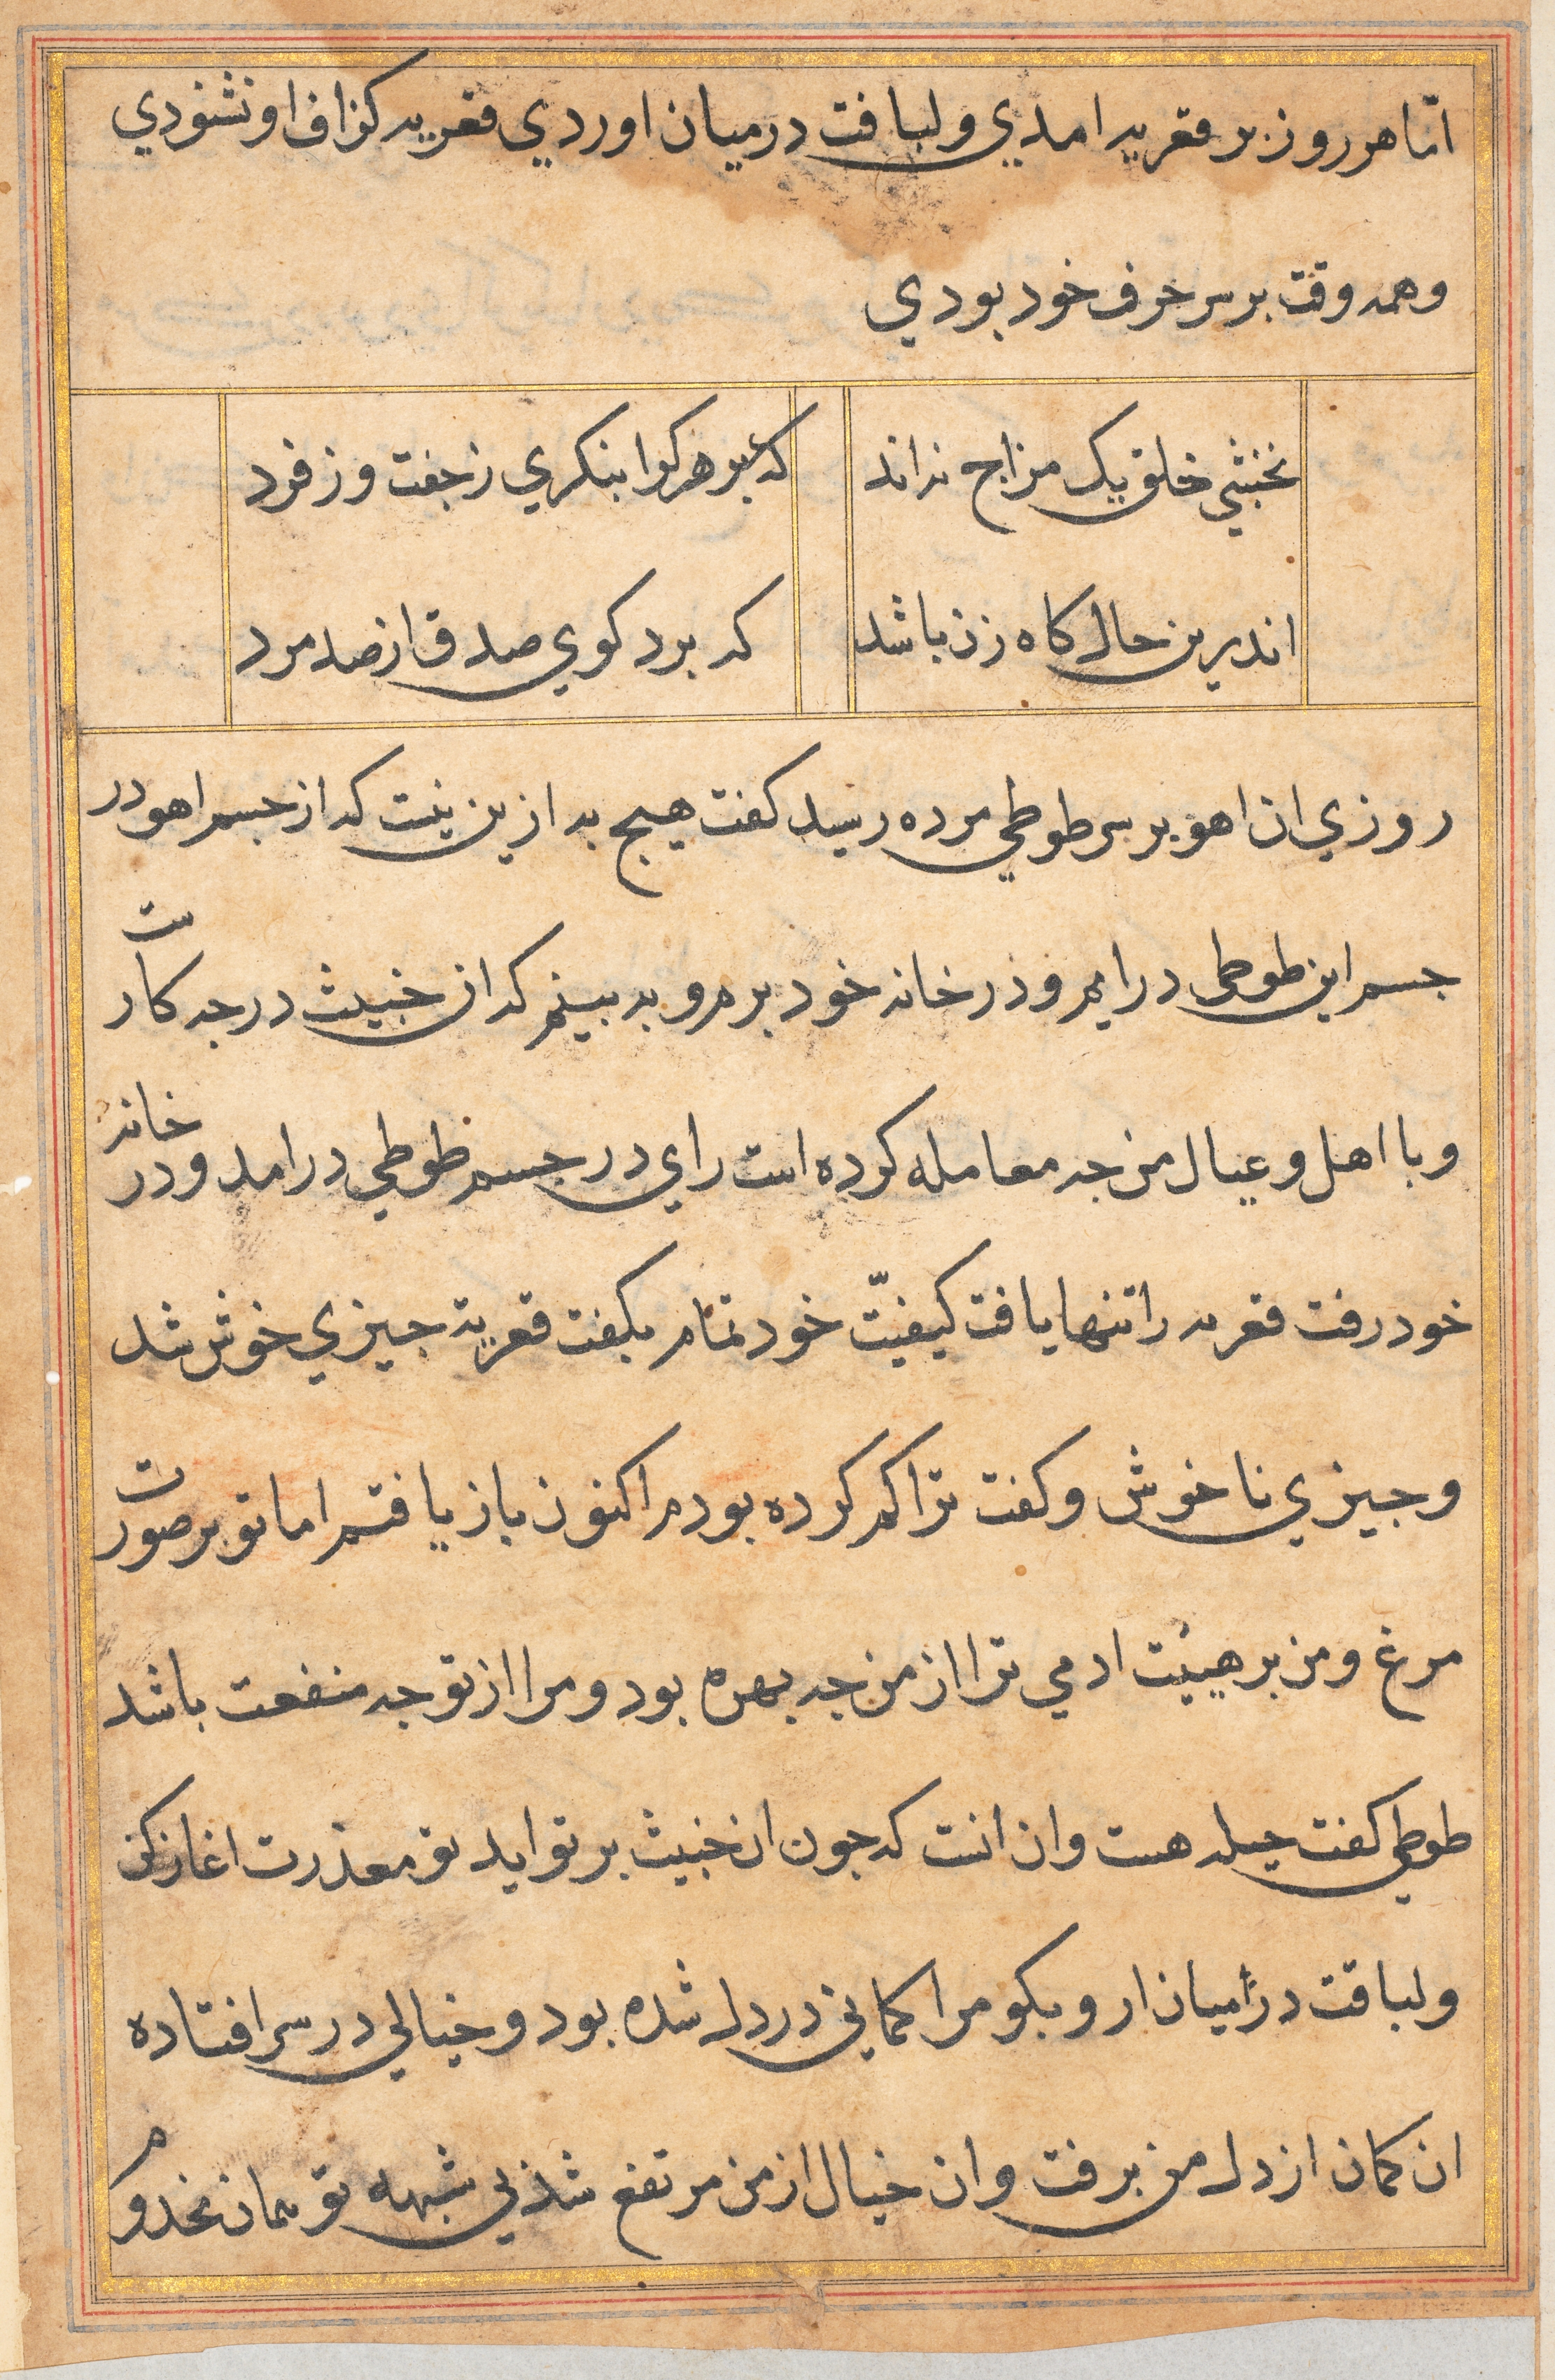 امّا هر روز بر قعریه امدي ولباقت درمیان اوردي قعریه کزاف او نشنودي
وهمه وقت بر سر حرف خود بودي
نخشبي خلق یک مزاج نداند
که بر هرکرا بنکري ز جفت وز فرد
اندرین حال کاه زن باشد
که برد کوي صدق از صد مرد
روزي ان اهو بر سر طوطي مرده رسید کفت هیج به ازین نیست که از جسم اهو در
جسم این طوطي درایم و در خانه خود برم و به بینم که ان خبیث درجه کارست
وبا اهل و عیال من جه معامله کرده است راي در جسم طوطي درامد و در خانه
خود رفت قعریه را تنها یافت کیفیّت خود تمام بکفت قعریه جیزي خوش شد
وجیزي ناخوش وکفت ترا کم کرده بودم اکنون باز یافتم اما تو بر صورت
مرغ ومن بر هیئت ادمي ترا از من جه بهره بود ومرا از تو جه منفعت باشد
طوطي کفت حیله هست وان انست که جون ان خبیث بر تو اید تو معذرت اغاز کن
ولباقت در میان ار و بکو مرا کماني در دل شده بود و خیالي در سر افتاده
ان کمان از دل من برفت وان خیال از من مرتفع شد بي شبهه تو همان مخدوم